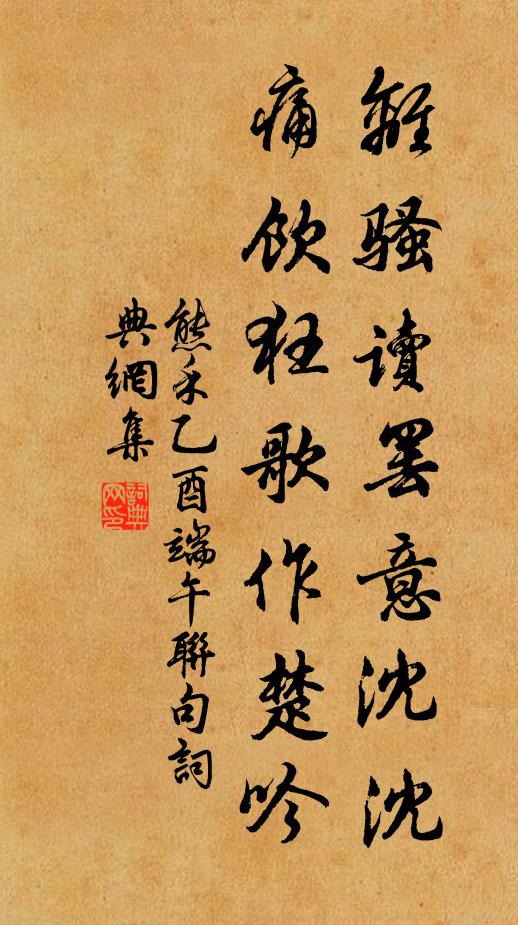 離騷讀罷意沈沈
痛飲狂歌作楚吟
熊禾乙酉端午聯句詞
典網集
詞典
网印